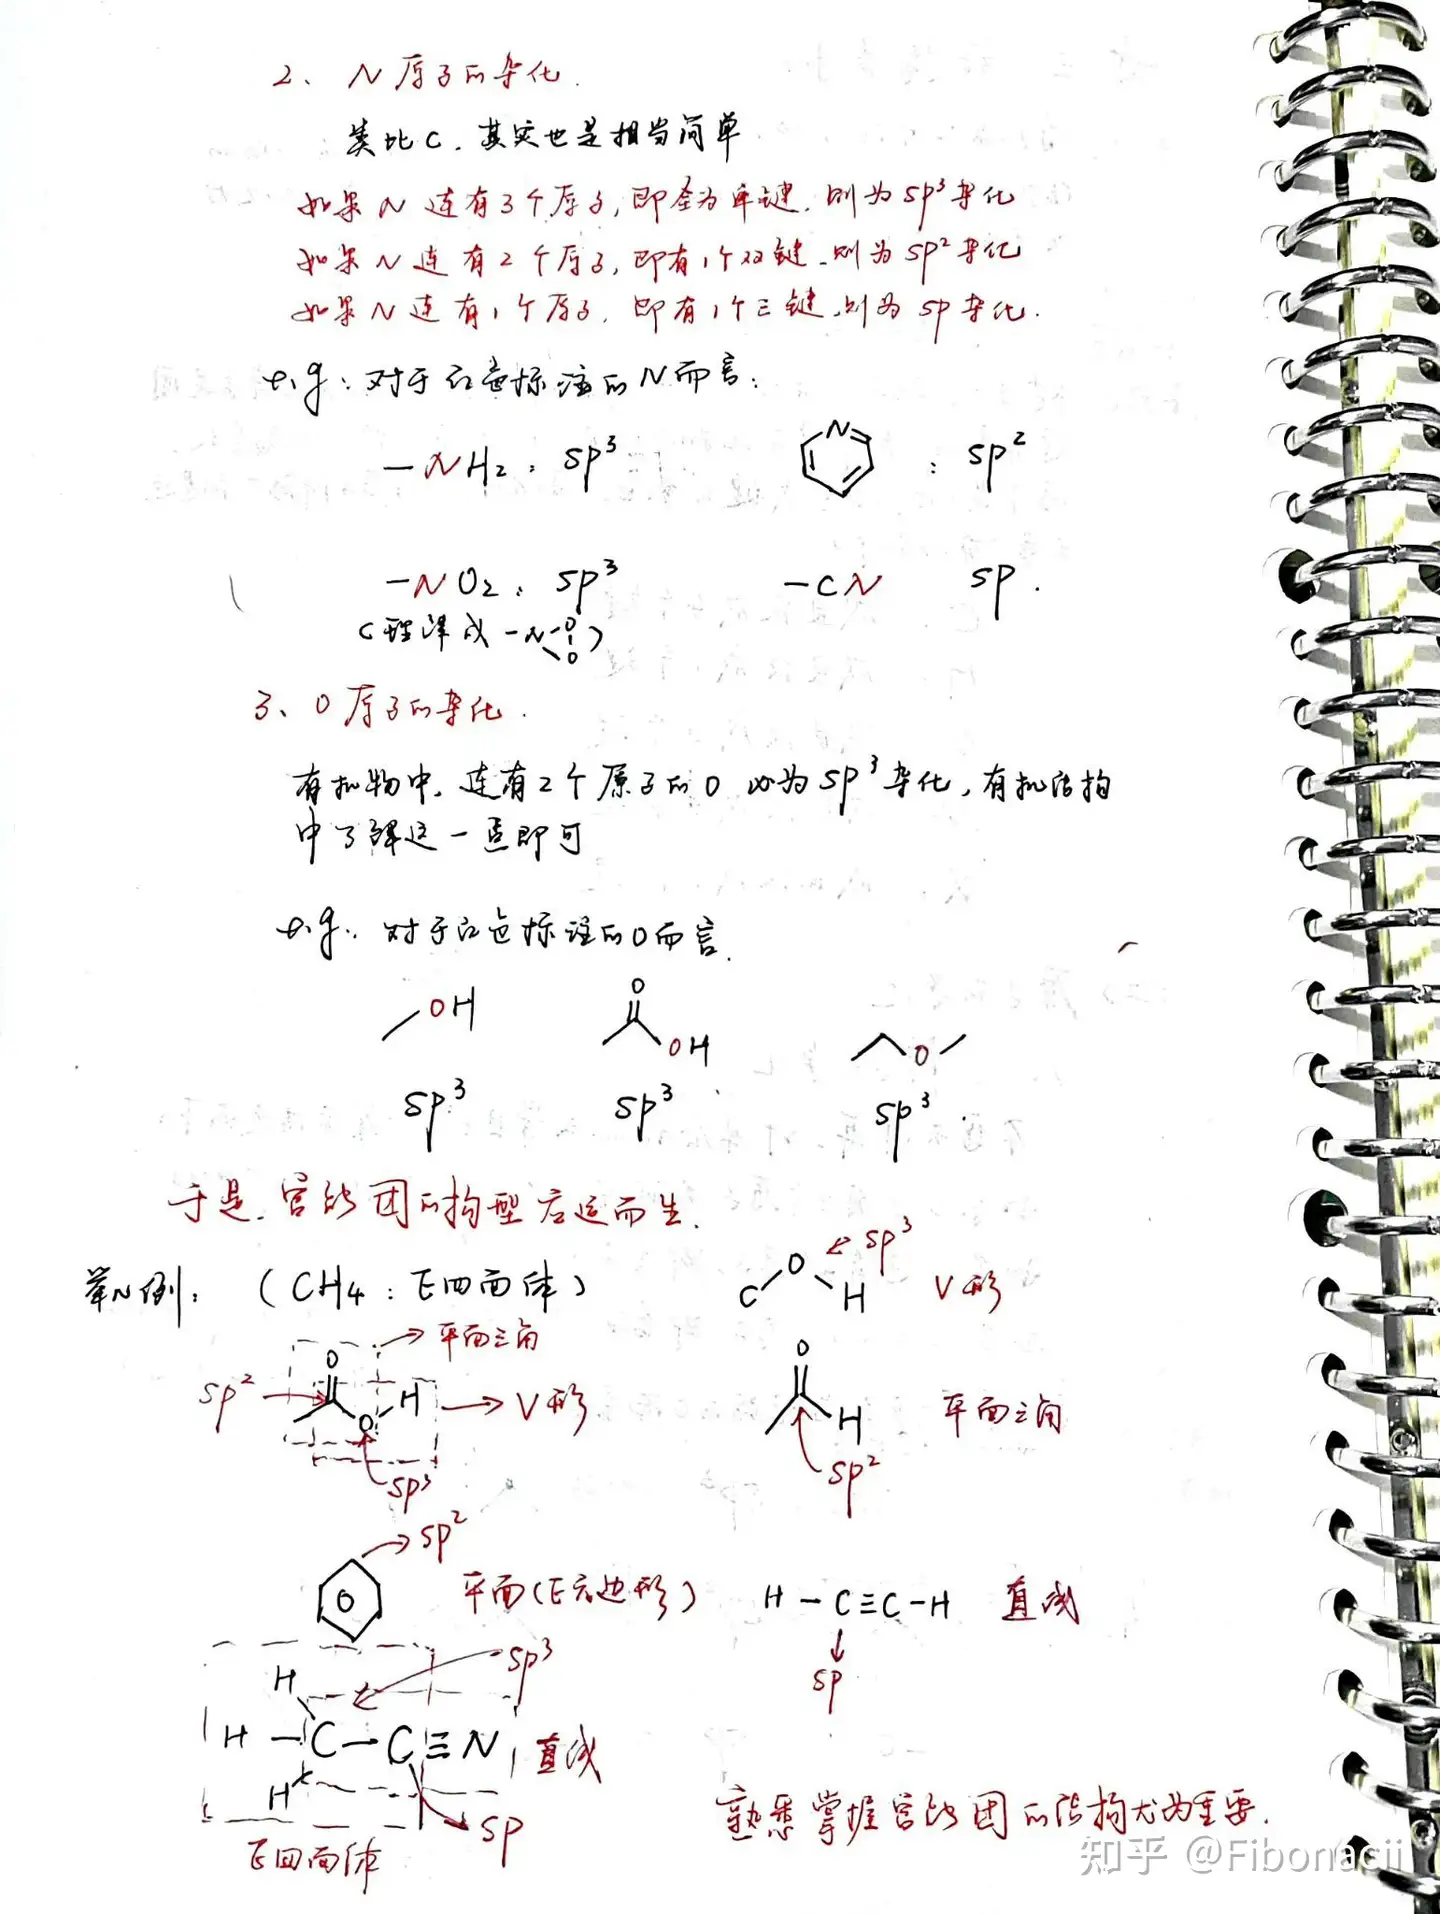 2、N原子的杂化.
类比C,其实也是相当简单
如果N连有3个原子,即全为单键,则为sp³杂化
如果N连有2个原子,即有1个双键,则为sp²杂化
如果N连有1个原子,即有1个三键,则为sp杂化.
e.g:对于红色标注的N而言:
—NH₂:sp³
N :sp²
—NO₂:sp³
—CN sp.
(理解成—N O O)
3、O原子的杂化.
有机物中,连有2个原子的O必为sp³杂化,有机结构
中了解这一点即可
e.g:对于红色标注的O而言.
OH
O OH
O
sp³
sp³
sp³
于是,官能团的构型应运而生.
举N例: (CH₄:正四面体)
C O H sp³ V形
平面三角
sp² O O H V形
sp³
O H 平面三角
sp²
sp²
平面(正六边形)
H—C≡C—H 直线
sp
sp³
H
H—C—C≡N 直线
H
sp
正四面体
熟悉掌握官能团的结构尤为重要.
知乎 @Fibonacii